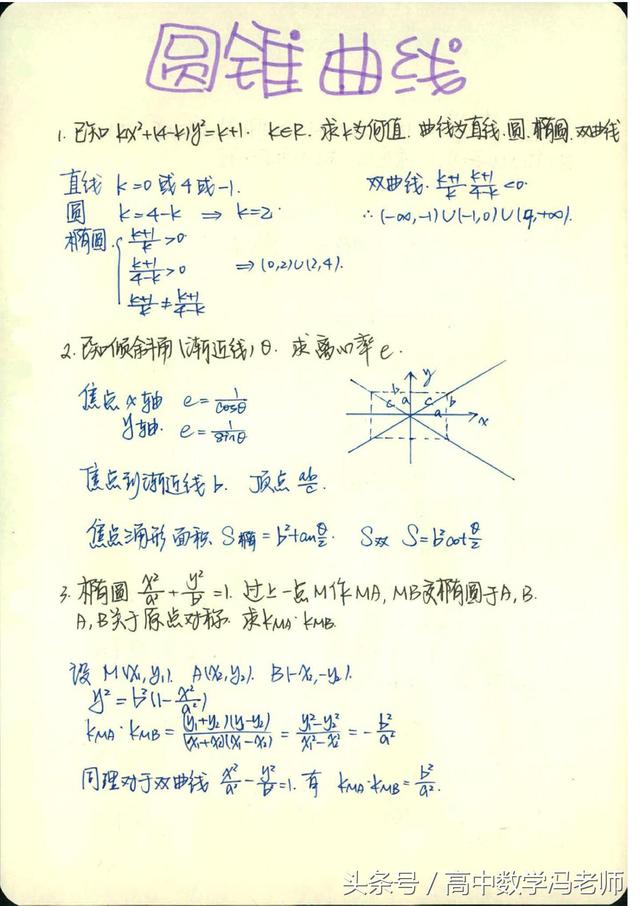 圆锥曲线
1. 已知 kx²+(4-k)y²=k+1. k∈R. 求k为何值. 曲线为直线.圆.椭圆.双曲线
直线 k=0或4或-1.
圆 k=4-k ⇒ k=2.
椭圆. { (k+1)/k>0
(k+1)/(4-k)>0 ⇒ (0,2)∪(2,4).
(k+1)/k≠(k+1)/(4-k)
双曲线. (k+1)/k (k+1)/(4-k)<0.
∴ (-∞,-1)∪(-1,0)∪(4,+∞).
2. 已知倾斜角(渐近线)θ. 求离心率e.
焦点x轴 e=1/cosθ
y轴. e=1/sinθ
y
b a c b
c a
x
焦点到渐近线b. 顶点 ab/c.
焦点三角形面积 S椭=b²tan θ/2. S双 S=b²cot θ/2
3. 椭圆 x²/a²+y²/b²=1. 过上一点M作MA, MB交椭圆于A, B.
A, B关于原点对称. 求kMA·kMB.
设 M(x₁,y₁). A(x₂,y₂). B(-x₂,-y₂).
y²=b²(1-x²/a²)
kMA·kMB=(y₁+y₂)(y₁-y₂)/(x₁+x₂)(x₁-x₂)=(y₁²-y₂²)/(x₁²-x₂²)=-b²/a²
同理对于双曲线 x²/a²-y²/b²=1. 有 kMA·kMB=b²/a².
头条号 / 高中数学冯老师